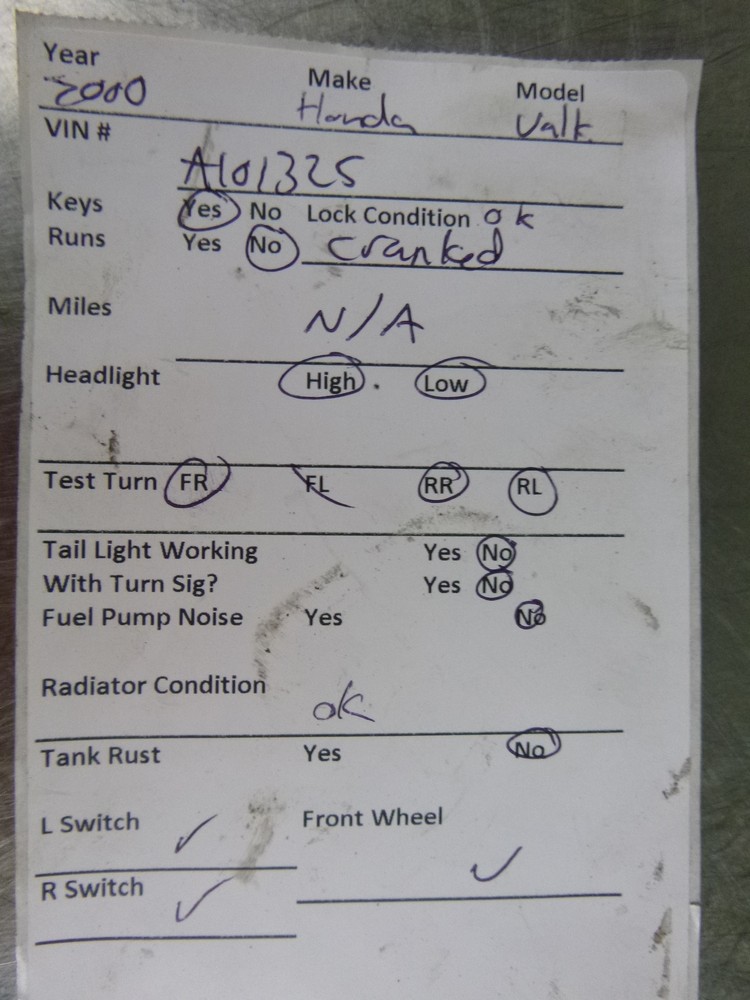 Year Make Model
2000 Honda Valk
VIN #
A101325
Keys Yes No Lock Condition ok
Runs Yes No cranked
Miles N/A
Headlight High . Low
Test Turn FR FL RR RL
Tail Light Working Yes No
With Turn Sig? Yes No
Fuel Pump Noise Yes No
Radiator Condition ok
Tank Rust Yes No
L Switch ✓ Front Wheel ✓
R Switch ✓